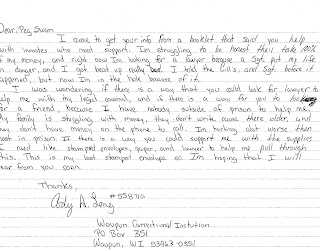 Dear, Peg Swan
I came to get your info from a booklet that said you help
with inmates who need support. Im struggling to be honest they take 100%
of my money, and right now Im looking for a lawyer because Sgt. put my life
in danger, and I got beat up really bad. I told the C/O's, and Sgt. before it
happened, but now Im in the hole because of it.
I was wondering if there is a way that you could look for lawyer to
help me with my legal, and if there is a way for you to look
for a friend, because I have nobody outside of prison to help me.
My family is struggling with money, they don't write came there older, and
they don't have money on the phone to call. Im hurting alot worse then
most in prison. If there is a way you could support me with the supplies
I need like stamped envelopes, paper, and lawyer to help me pull through
this. This is my last stamped envelope so Im hoping that I will
hear from you soon.
Thanks,
Cody A. Long #558710
Waupun Correctional Institution
PO Box 351
Waupun, WI 53963-0351